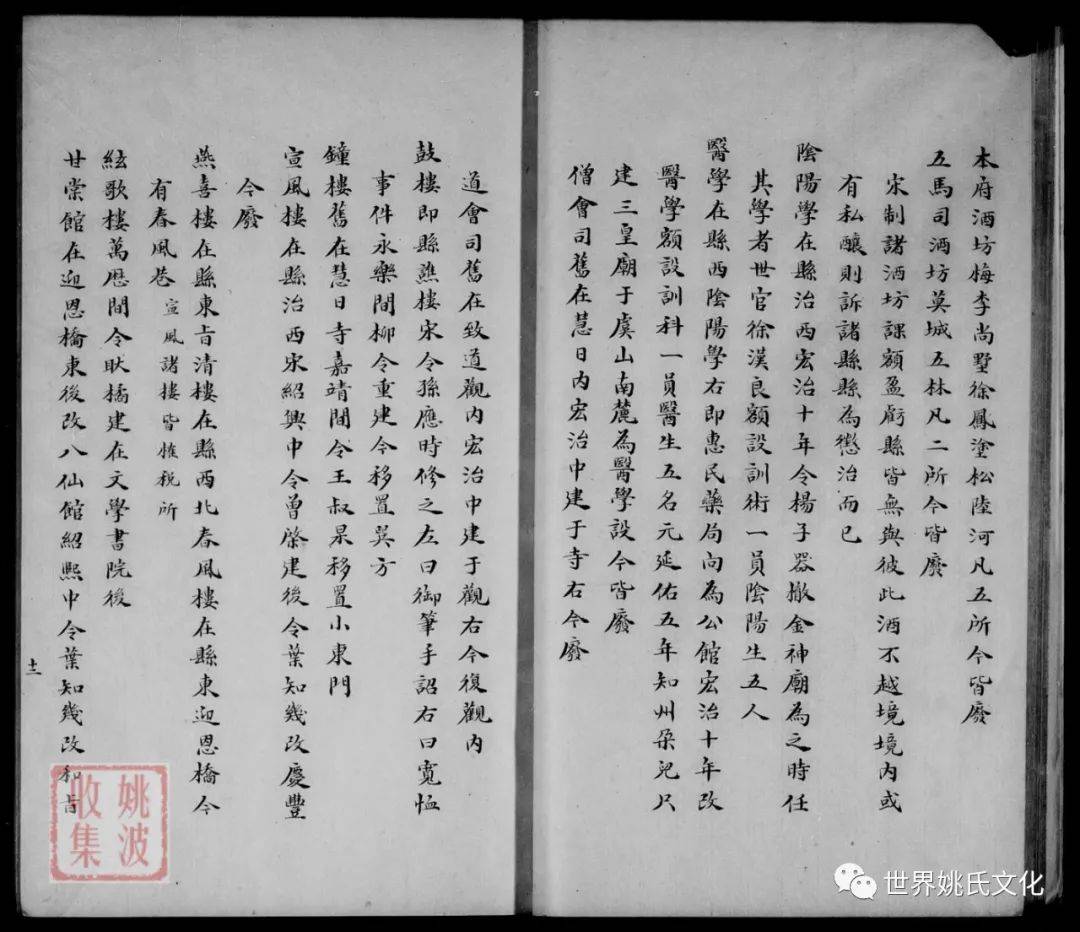 本府酒坊梅李尚墅徐鳳塗松陸河凡五所今皆廢
五馬司酒坊莫城五林凡二所今皆廢
宋制諸酒坊課額盈虧縣皆無與彼此酒不越境境內或
有私釀則訴諸縣縣為懲治而已
陰陽學在縣治西宏治十年令楊子器撤金神廟為之時任
其學者世官徐漢良額設訓術一員陰陽生五人
醫學在縣西陰陽學右即惠民藥局向為公館宏治十年改
醫學額設訓科一員醫生五名元延佑五年知州朶兒尺
建三皇廟于虞山南麓為醫學設今皆廢
僧會司舊在慧日內宏治中建于寺右今廢
道會司舊在致道觀內宏治中建于觀右今復觀內
鼓樓即縣譙樓宋令孫應時修之左曰御筆手詔右曰寬恤
事件永樂間柳令重建今移置巽方
鐘樓舊在慧日寺嘉靖間令王叔杲移置小東門
宣風樓在縣治西宋紹興中令曾棨建後令葉知幾改慶豐
今廢
燕喜樓在縣東旨清樓在縣西北春風樓在縣東迎恩橋今
有春風巷宣風諸樓皆榷税所
絃歌樓萬厯間令耿橘建在文學書院後
甘棠館在迎恩橋東後改八仙館紹熙中令葉知幾改和旨
十二
姚波
收集
世界姚氏文化